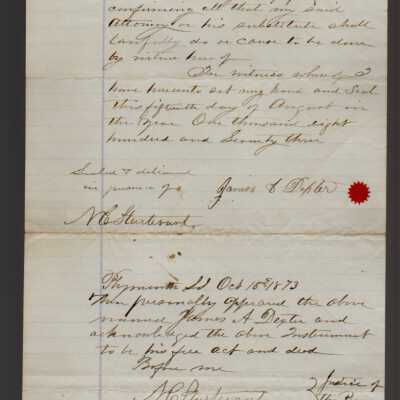 confirming all that my said
Attorney or his substitute shall
lawfully do or cause to be done
by virtue hereof
In witness whereof I
have hereunto set my hand and Seal
this fifteenth day of August in
the Year One thousand eight
hundred and Seventy three
Sealed & delivered
in presence of
James Dexter
N C Sturtevant
Plymouth SS Oct 1873
Then personally appeared the above
named James A Dexter and
acknowledged the above Instrument
to be his free act and deed
Before me
N C Sturtevant
Justice of
the